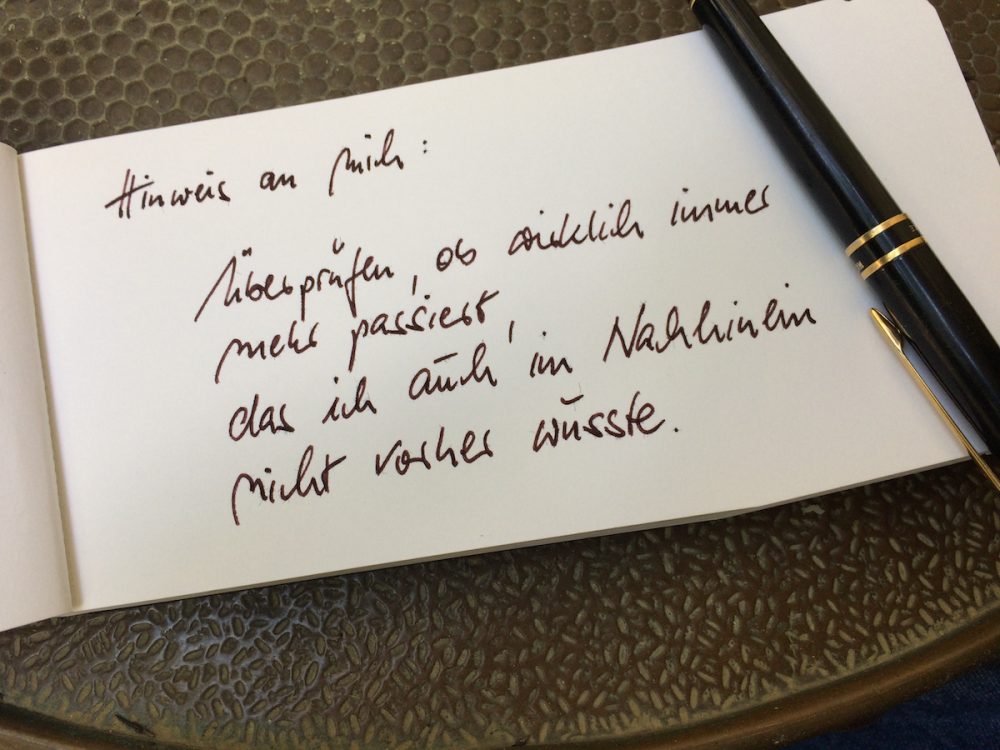 Hinweis an mich:
Überprüfen, ob wirklich immer
mehr passiert,
das ich auch im Nachhinein
nicht vorher wüsste.